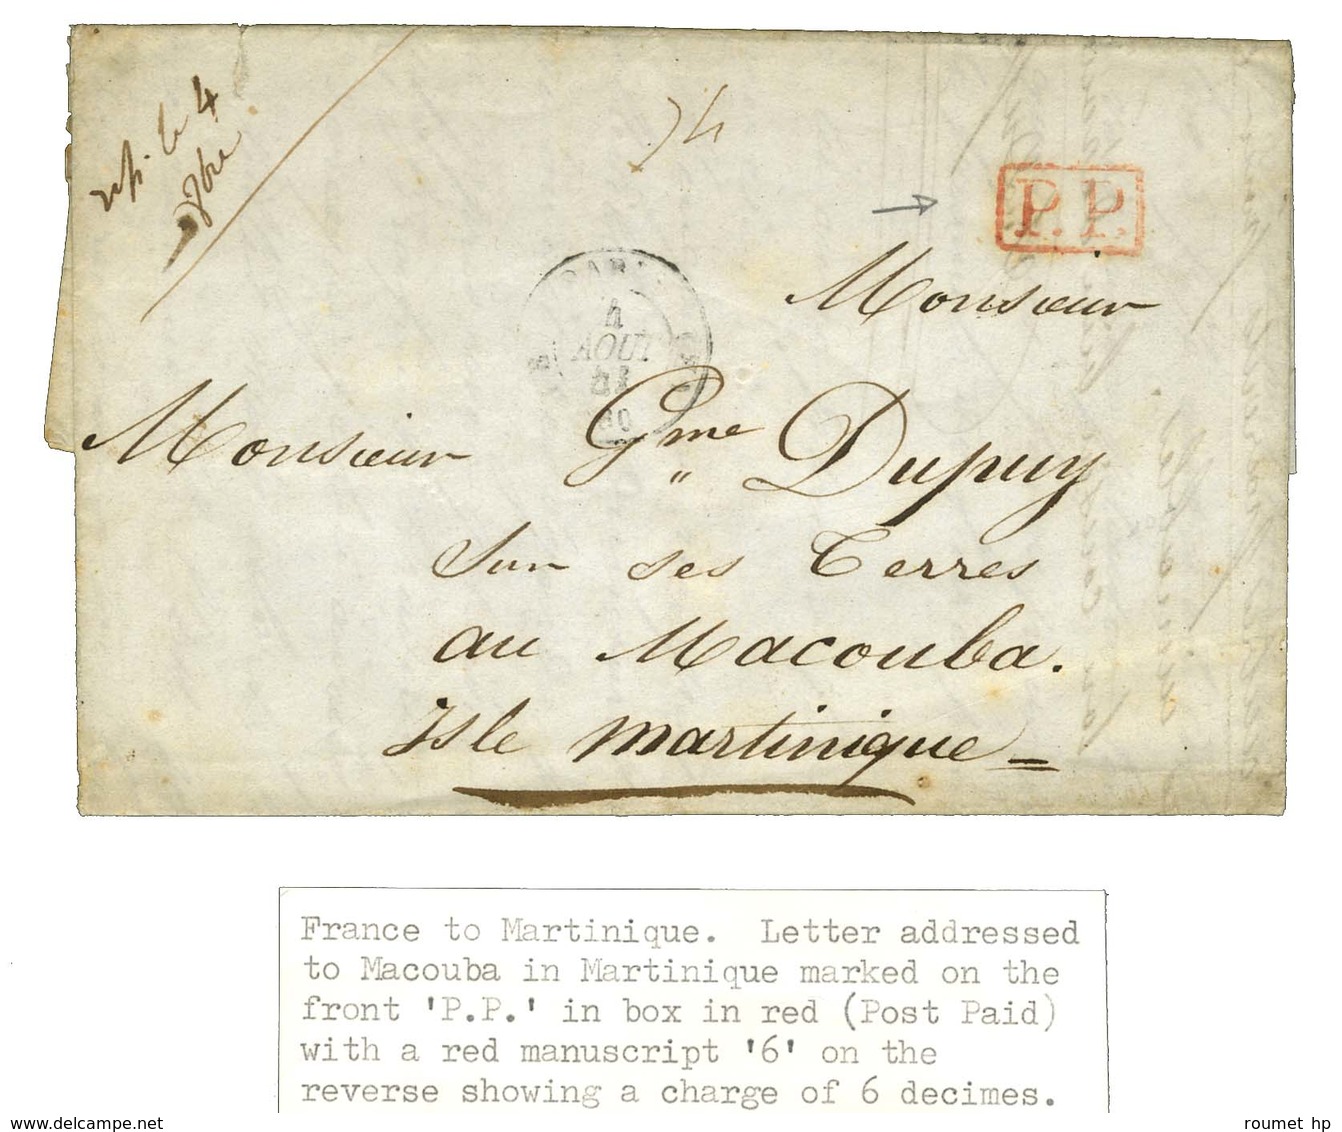 rép. le 4
8bre
P.P.
PARIS
4
AOUT
Monsieur
Monsieur Gme Dupuy
Sur ses Terres
au Macouba.
Isle Martinique=
France to Martinique. Letter addressed
to Macouba in Martinique marked on the
front 'P.P.' in box in red (Post Paid)
with a red manuscript '6' on the
reverse showing a charge of 6 decimes.
www.delcampe.net
roumet hp